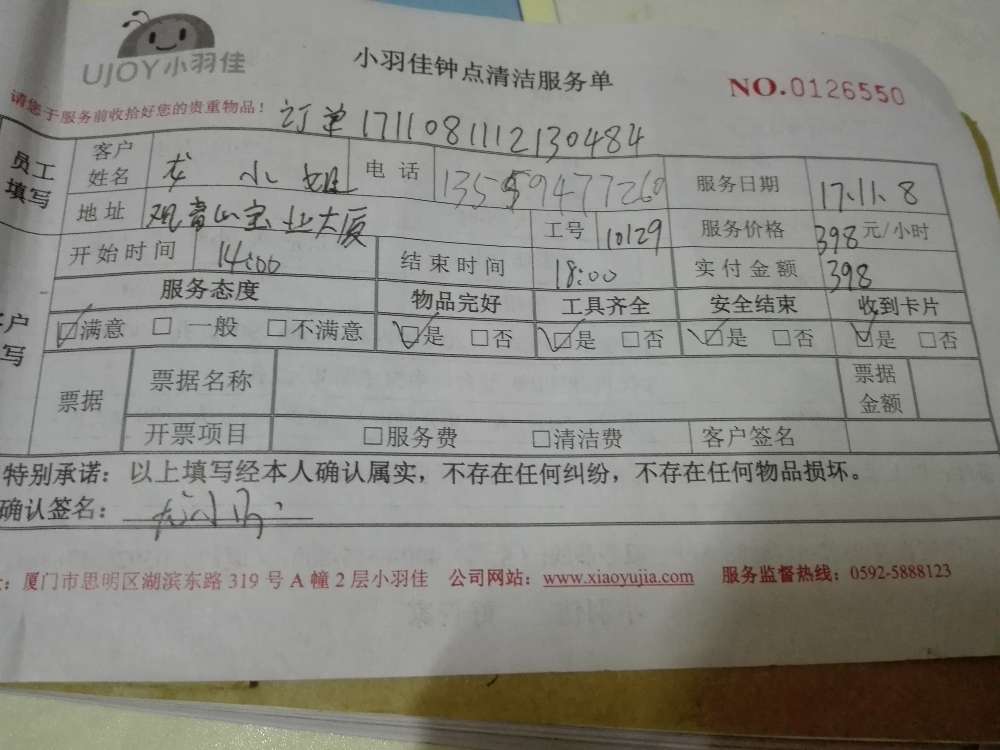 UJOY小羽佳
小羽佳钟点清洁服务单
NO.0126550
请您于服务前收拾好您的贵重物品！
订单1711081112130484
员工填写
客户姓名 龙小姐 电话 13559477260 服务日期 17.11.8
地址 观音山宝业大厦 工号 10129 服务价格 398元/小时
开始时间 14:00 结束时间 18:00 实付金额 398
服务态度 物品完好 工具齐全 安全结束 收到卡片
户写
☑满意 □一般 □不满意 ☑是 □否 ☑是 □否 ☑是 □否 ☑是 □否
票据 票据名称 票据金额
开票项目 □服务费 □清洁费 客户签名
特别承诺：以上填写经本人确认属实，不存在任何纠纷，不存在任何物品损坏。
确认签名：
：厦门市思明区湖滨东路319号A幢2层小羽佳 公司网站：www.xiaoyujia.com 服务监督热线：0592-5888123